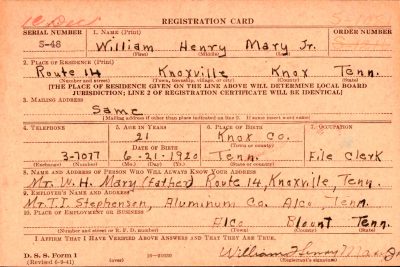 REGISTRATION CARD
SERIAL NUMBER 1. NAME (Print) ORDER NUMBER
S-48 William Henry Mary Jr.
(First) (Middle) (Last)
2. PLACE OF RESIDENCE (Print)
Route 14 Knoxville Knox Tenn.
(Number and street) (Town, township, village, or city) (County) (State)
[THE PLACE OF RESIDENCE GIVEN ON THE LINE ABOVE WILL DETERMINE LOCAL BOARD
JURISDICTION; LINE 2 OF REGISTRATION CERTIFICATE WILL BE IDENTICAL]
3. MAILING ADDRESS
Same
[Mailing address if other than place indicated on line 2. If same insert word same]
4. TELEPHONE 5. AGE IN YEARS 6. PLACE OF BIRTH
21 Knox Co.
DATE OF BIRTH (Town or county)
3-7077 6-21-1920 Tenn. File Clerk
(Exchange) (Number) (Mo.) (Day) (Yr.) (State or country)
8. NAME AND ADDRESS OF PERSON WHO WILL ALWAYS KNOW YOUR ADDRESS
Mr. W. H. Mary (Father) Route 14, Knoxville, Tenn.
9. EMPLOYER'S NAME AND ADDRESS
Mr. T. I. Stephenson, Aluminum Co. Alco Tenn.
10. PLACE OF EMPLOYMENT OR BUSINESS
Alco Blount Tenn.
(Number and street or R. F. D. number) (Town) (County) (State)
I AFFIRM THAT I HAVE VERIFIED ABOVE ANSWERS AND THAT THEY ARE TRUE.
D. S. S. Form 1
(Revised 6-9-41) (over) William Henry Mary Jr
(Registrant's signature)